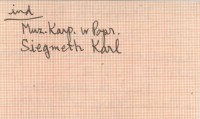 ind
Muz. Karp. w Popr.
Siegmeth Karl